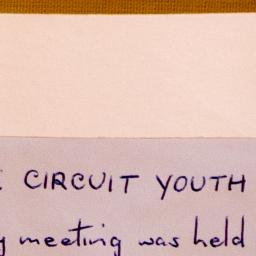 CIRCUIT YOUTH
meeting was held